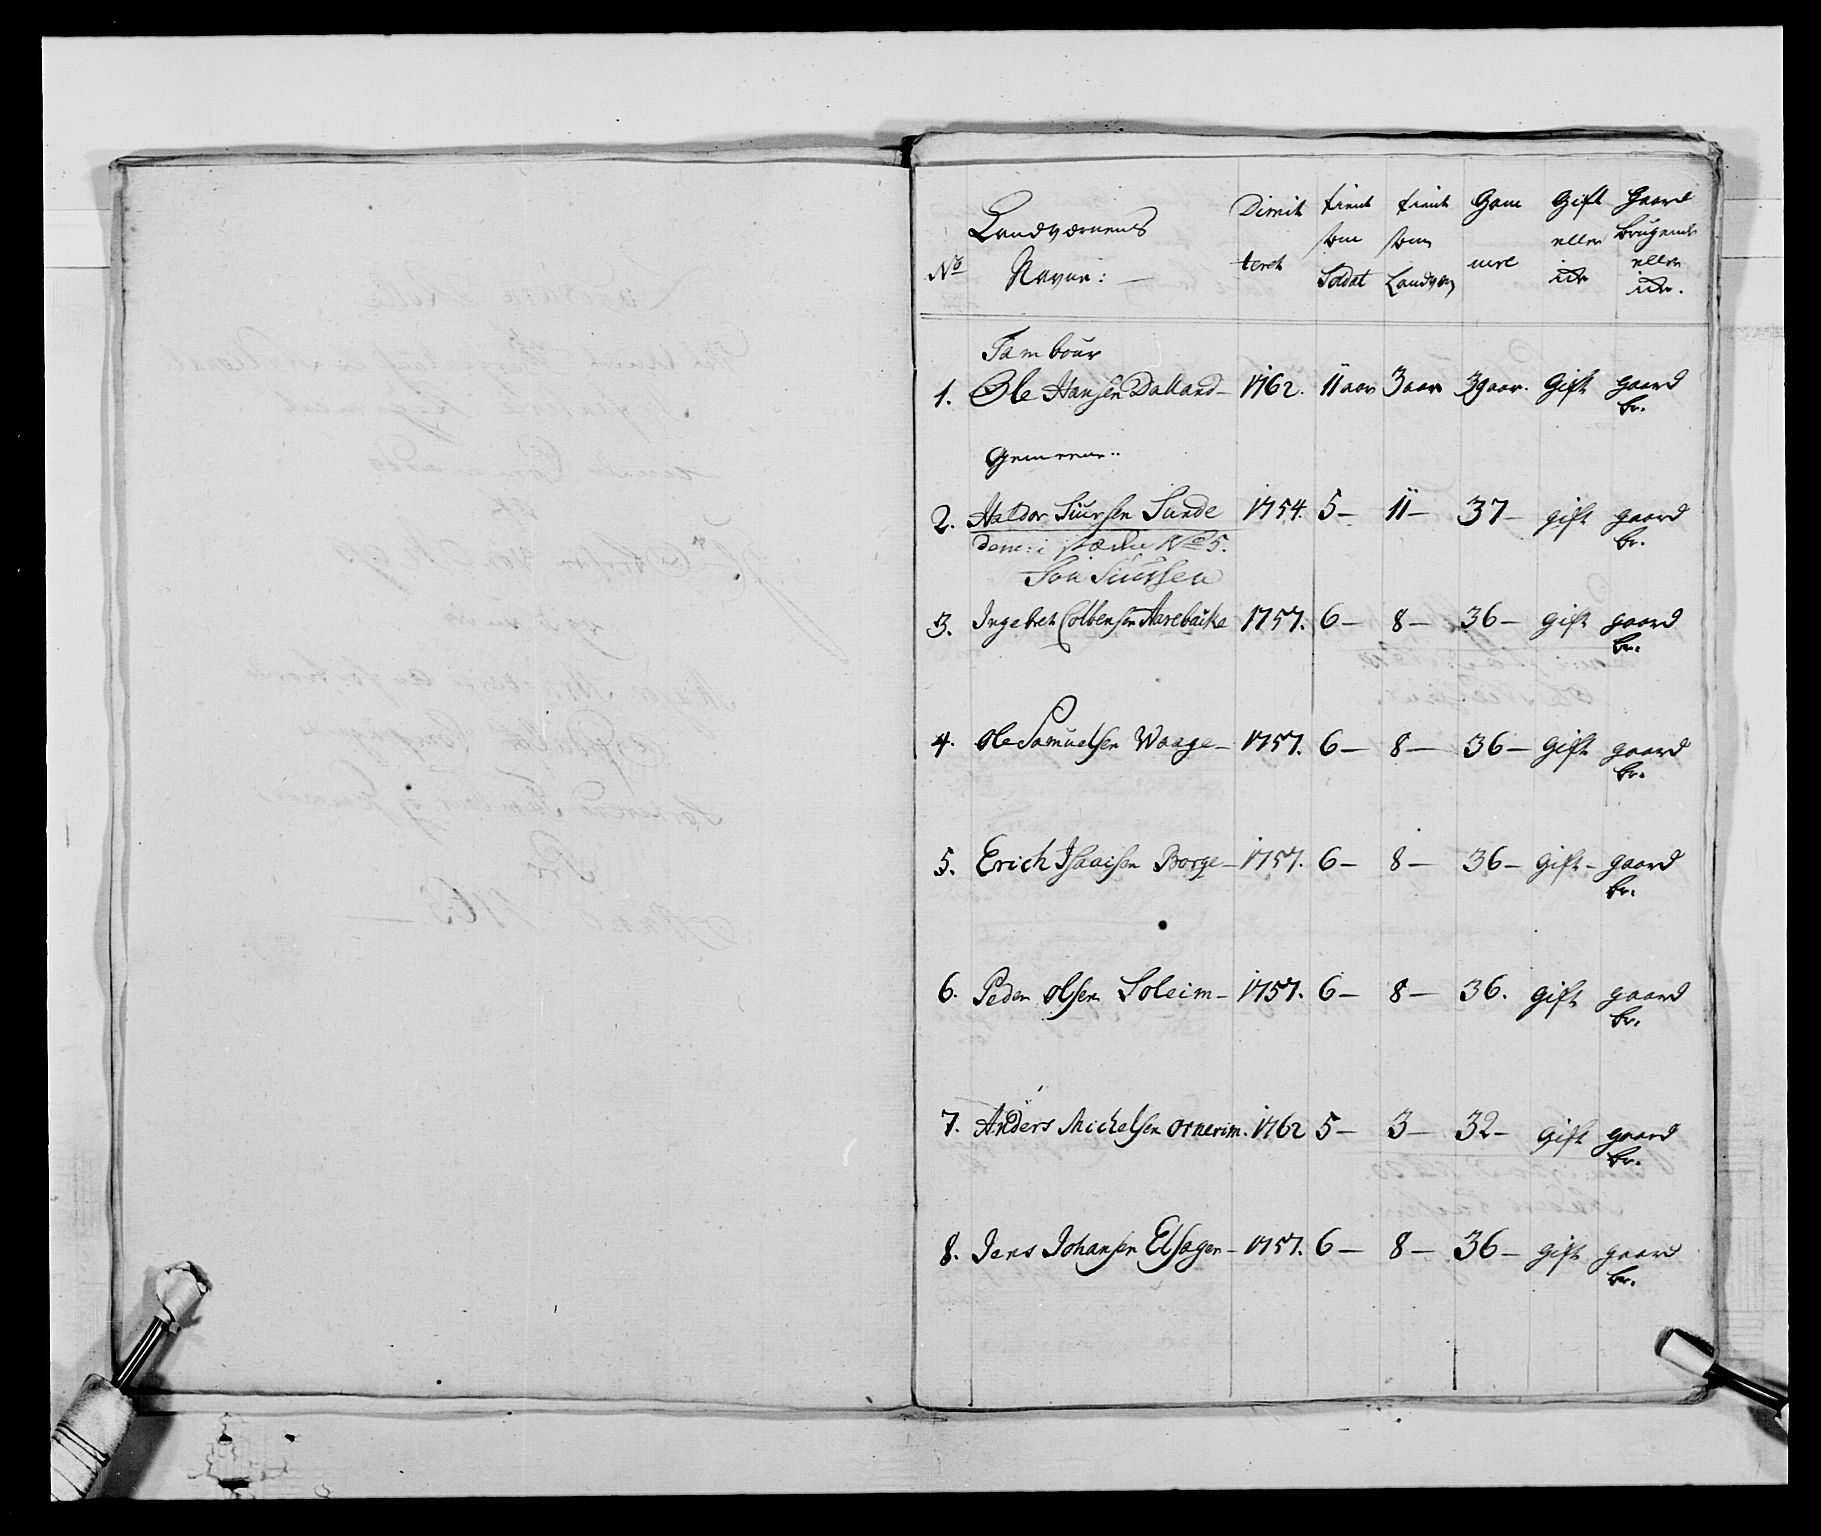 No Landværnens Navne: — Dimitteret tient som Soldat tient som Landværn Gammel Gift eller icke Gaard brugende eller icke.
Tambour
1. Ole Hansen Dalland — 1762. 11 aar 3 aar 39 aar. Gift gaard br.
Gemeene:
2. Haldor Siursen Sunde 1754. 5 — 11 — 37 — gift gaard br.
No 5.
Siursen
3. Ingebret Colbensen Aarebache 1757. 6 — 8 — 36 — gift gaard br.
4. Ole Samuelsen Waage — 1757. 6 — 8 — 36 — gift gaard br.
5. Erich Isaaisen Borge — 1757. 6 — 8 — 36 — gift — gaard br.
6. Peder Olsen Soleim — 1757. 6 — 8 — 36. gift gaard br.
7. Anders Michelsen ornerim. 1762 5 — 3 — 32 — gift gaard br.
8. Jens Johansen Elsager — 1757. 6 — 8 — 36 — gift gaard br.